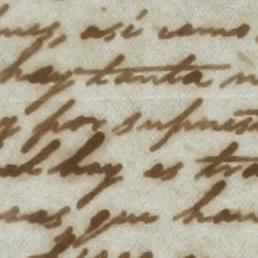 así como
hay tanta
y por supuest
al hay es tra
que han